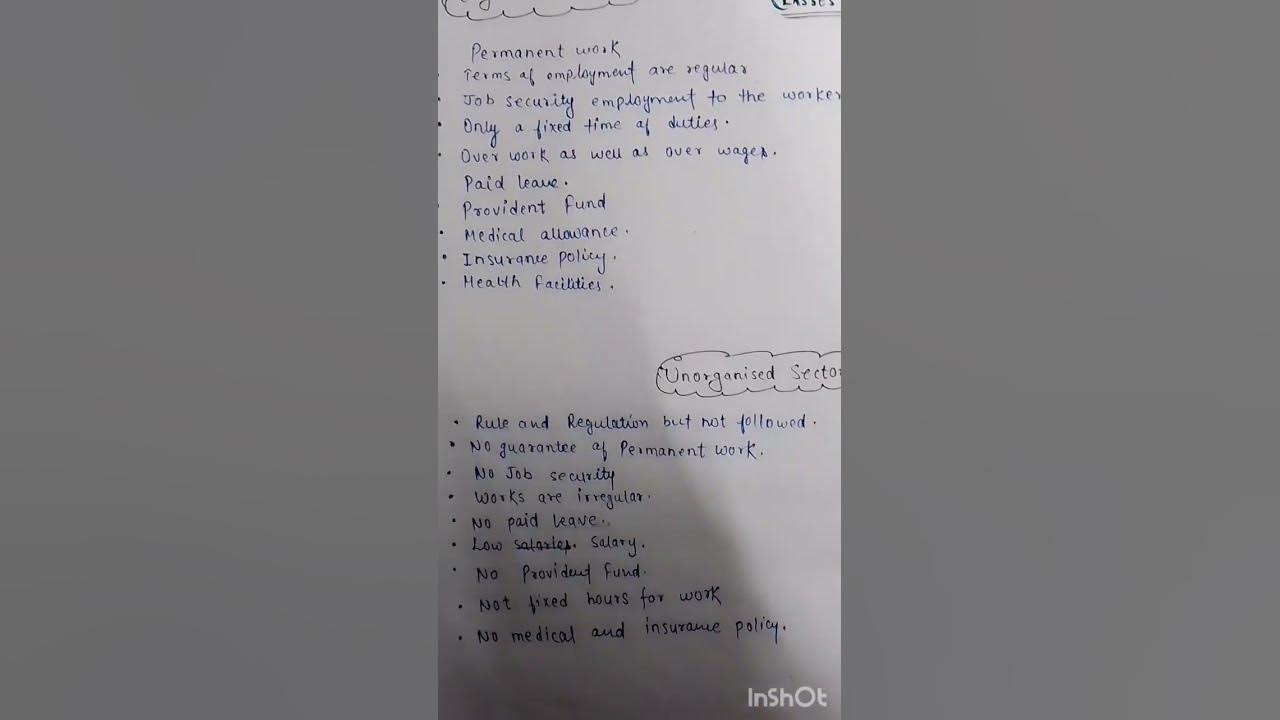 Permanent work
• Terms of employment are regular
• Job security employment to the worker
• Only a fixed time of duties.
• Over work as well as over wages.
Paid leave.
• Provident Fund
• Medical allowance.
• Insurance policy.
• Health Facilities.
Unorganised Secto
• Rule and Regulation but not followed.
• No guarantee of Permanent work.
• No Job security
• Works are irregular.
• No paid leave.
• Low salaries. Salary.
• No Provident Fund.
• Not fixed hours for work
• No medical and insurance policy.
InShOt